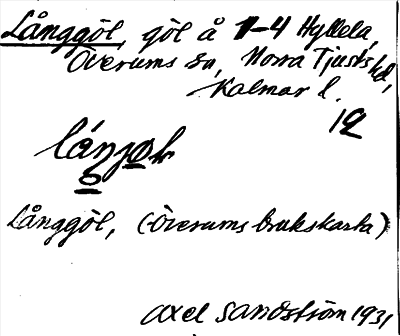 Långgöl, göl å 1-4 Hyllela,
Överums sn, Norra Tjusts hd,
Kalmar l.
Långgöl, (Överums brukskarta)
Axel Sandström 1931